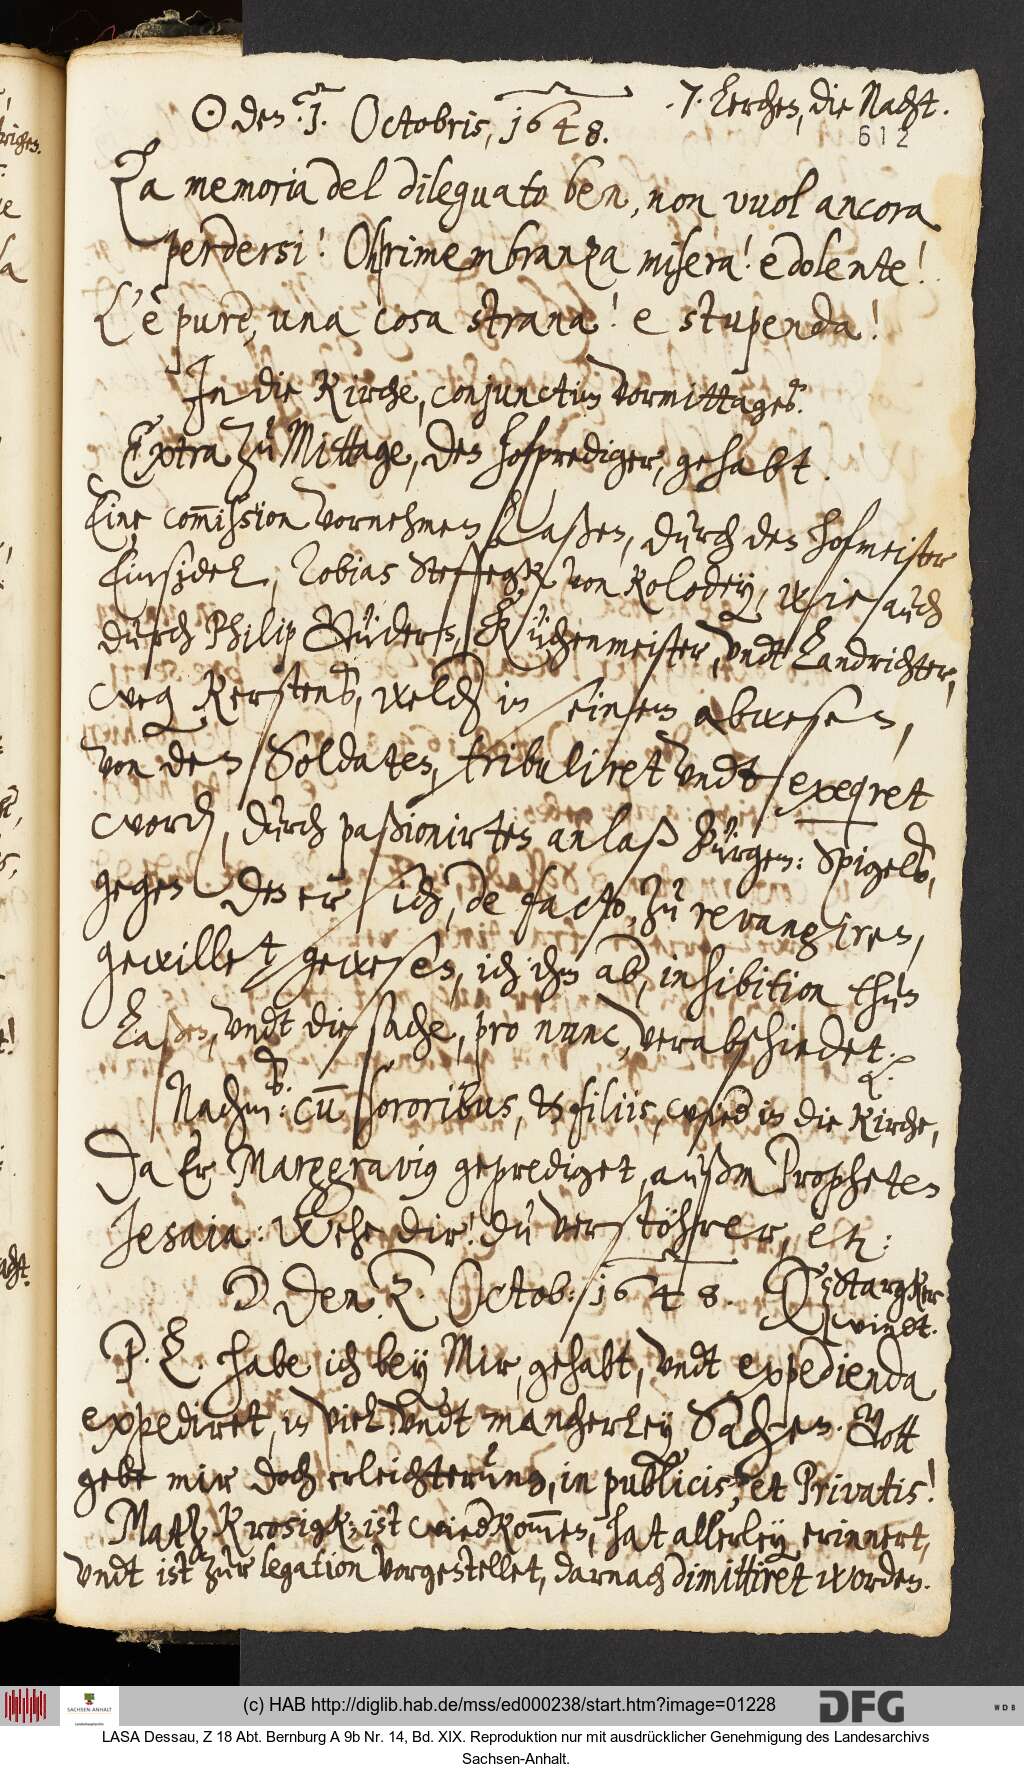 ☉ den .1. Octobris, 1648.
.7. Lerchen, die Nacht.
612
La memoria del dileguato ben, non vuol ancora
perdersi! Oh rimembranza misera! e dolente!
L'è pure, una cosa strana! e stupenda!
In die Kirche, conjunctim vormittages.
Extra zu Mittage, den hofprediger, gehabt.
Eine com̅ission vornehmen Laßen, durch den hofmeister
Einsidel, Tobias Steffegk von Kolodey, wie auch
durch Philip Güders, Küchenmeister, vndt Landrichter,
weg Kerstens, welch in seinem abwesen,
von den Soldaten, tribuliret vndt exeqret
word, durch paßionirten anlaß Bürgem: Spigels,
gegen den er sich, de facto, zu revangiren,
gewillet gewesen, ich ihm ab, inhibition thun
Laßen, vndt die sache, pro nunc, verabschiedet.
Nachm: cu̅ sororibus, & filiis, wied in die Kirche,
Da Er Marggravig geprediget, außm Propheten
Jesaia: Wehe dir! du verstöhrer, etc:
☽ den 2. Octob: 1648.
Starcker
windt.
P. L. habe ich bey Mir, gehabt, vndt expedienda
expediret, in viel vndt mancherley Sachen. Gott
gebe mir doch erleichterung, in publicis, et Privatis!
Matz Krosigk, ist wied kom̅en, hat allerley erinnert,
vndt ist zur legation vorgestellet, darnach dimittiret worden.
(c) HAB http://diglib.hab.de/mss/ed000238/start.htm?image=01228
SACHSEN-ANHALT
DFG
WDB
LASA Dessau, Z 18 Abt. Bernburg A 9b Nr. 14, Bd. XIX. Reproduktion nur mit ausdrücklicher Genehmigung des Landesarchivs
Sachsen-Anhalt.